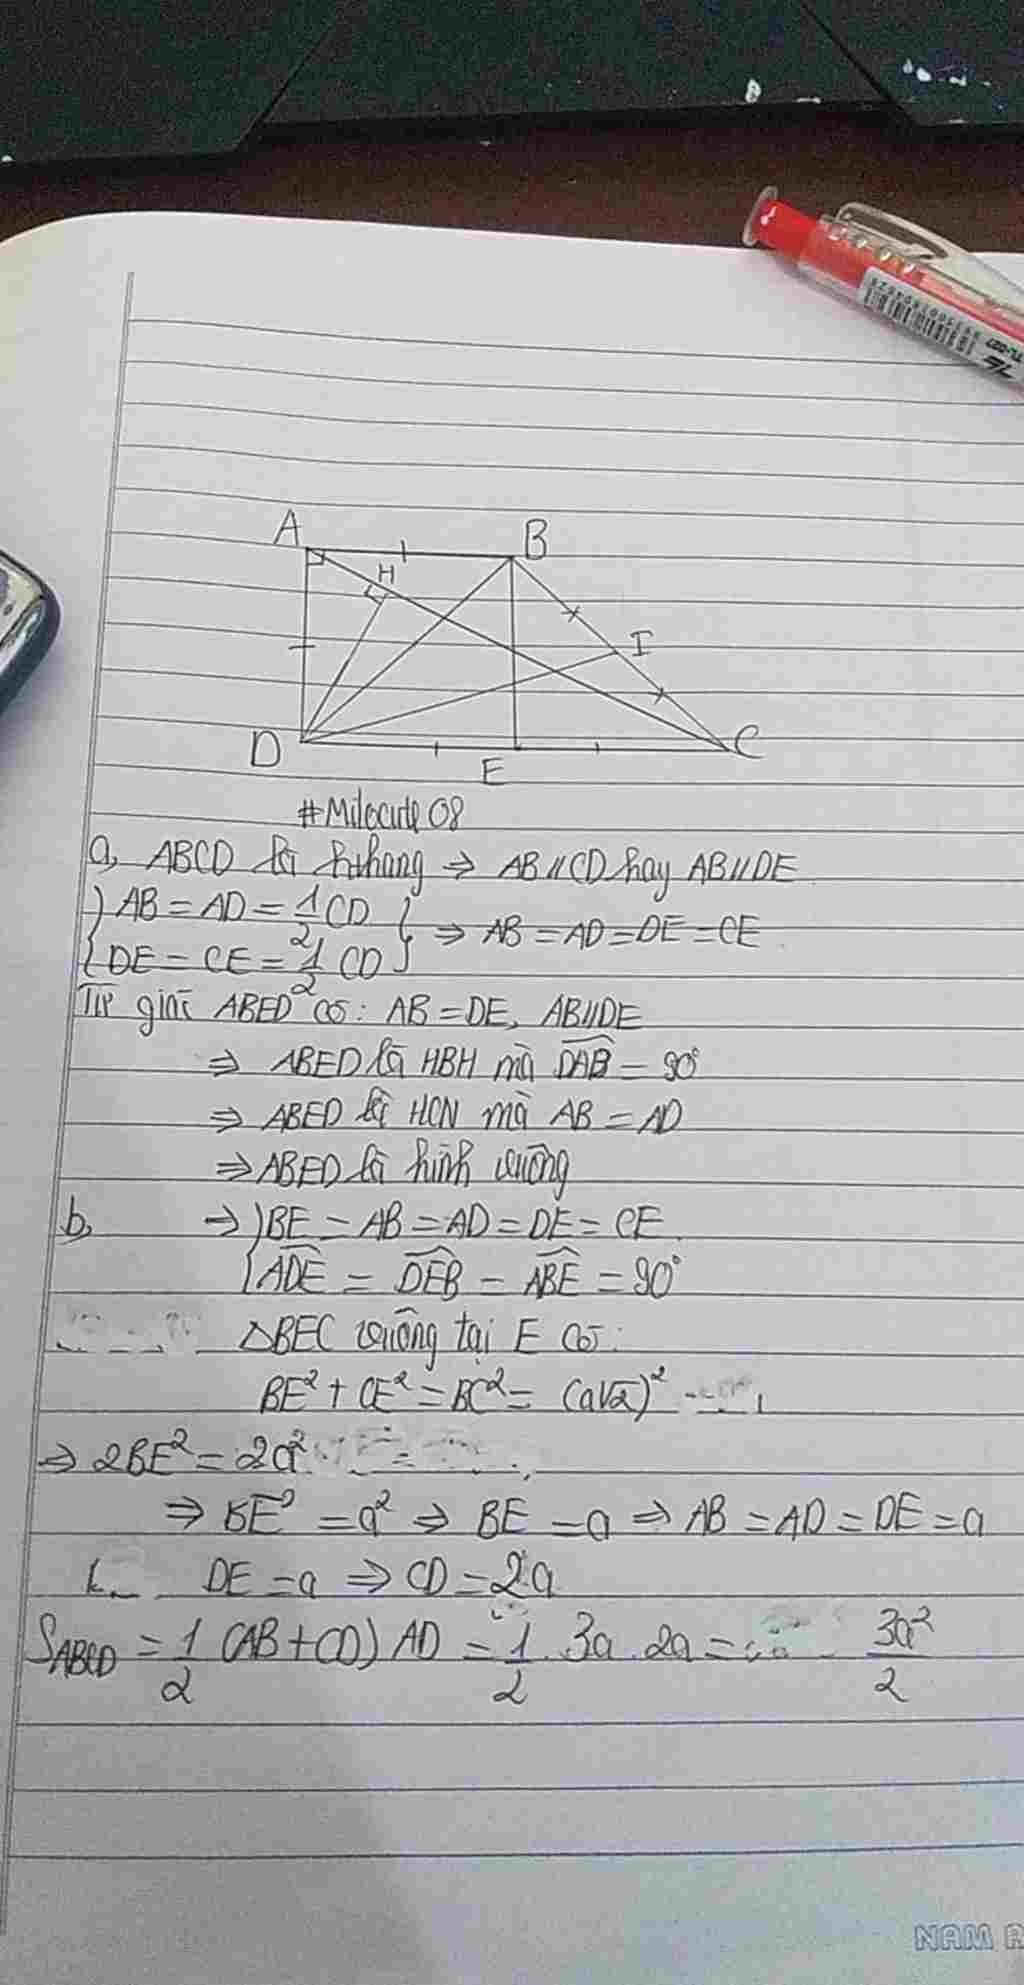 A B
H
I
D E C
#Milocute08
a, ABCD là h.thang ⇒ AB//CD hay AB//DE
{AB = AD = 1/2 CD
{DE = CE = 1/2 CD } ⇒ AB = AD = DE = CE
Tứ giác ABED có: AB = DE, AB//DE
⇒ ABED là HBH mà DAB = 90°
⇒ ABED là HCN mà AB = AD
⇒ ABED là hình vuông
b, ⇒ {BE = AB = AD = DE = CE
{ADE = DEB = ABE = 90°
△BEC vuông tại E có:
BE² + CE² = BC² = (a√2)²
⇒ 2BE² = 2a²
⇒ BE² = a² ⇒ BE = a ⇒ AB = AD = DE = a
DE = a ⇒ CD = 2a
S_ABCD = 1/2 (AB + CD) AD = 1/2 . 3a . 2a = 3a²/2
NAM
TL-027